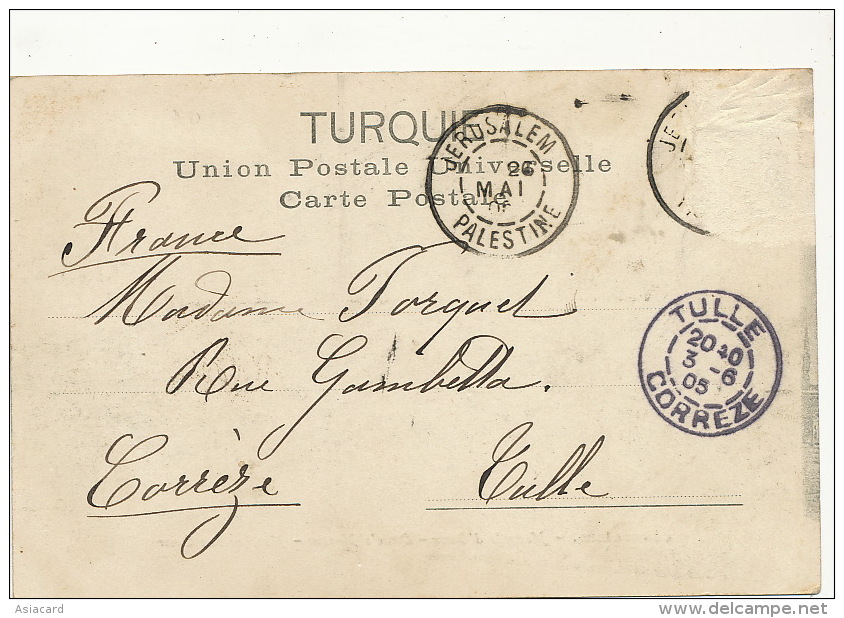 TURQUIE
Union Postale Universelle
Carte Postale
JERUSALEM
26
MAI
05
PALESTINE
JE
France
Madame Torquet
Rue Gambetta.
Corrèze
Tulle
TULLE
20 40
3 - 6
05
CORREZE
Asiacard
delcampe.net